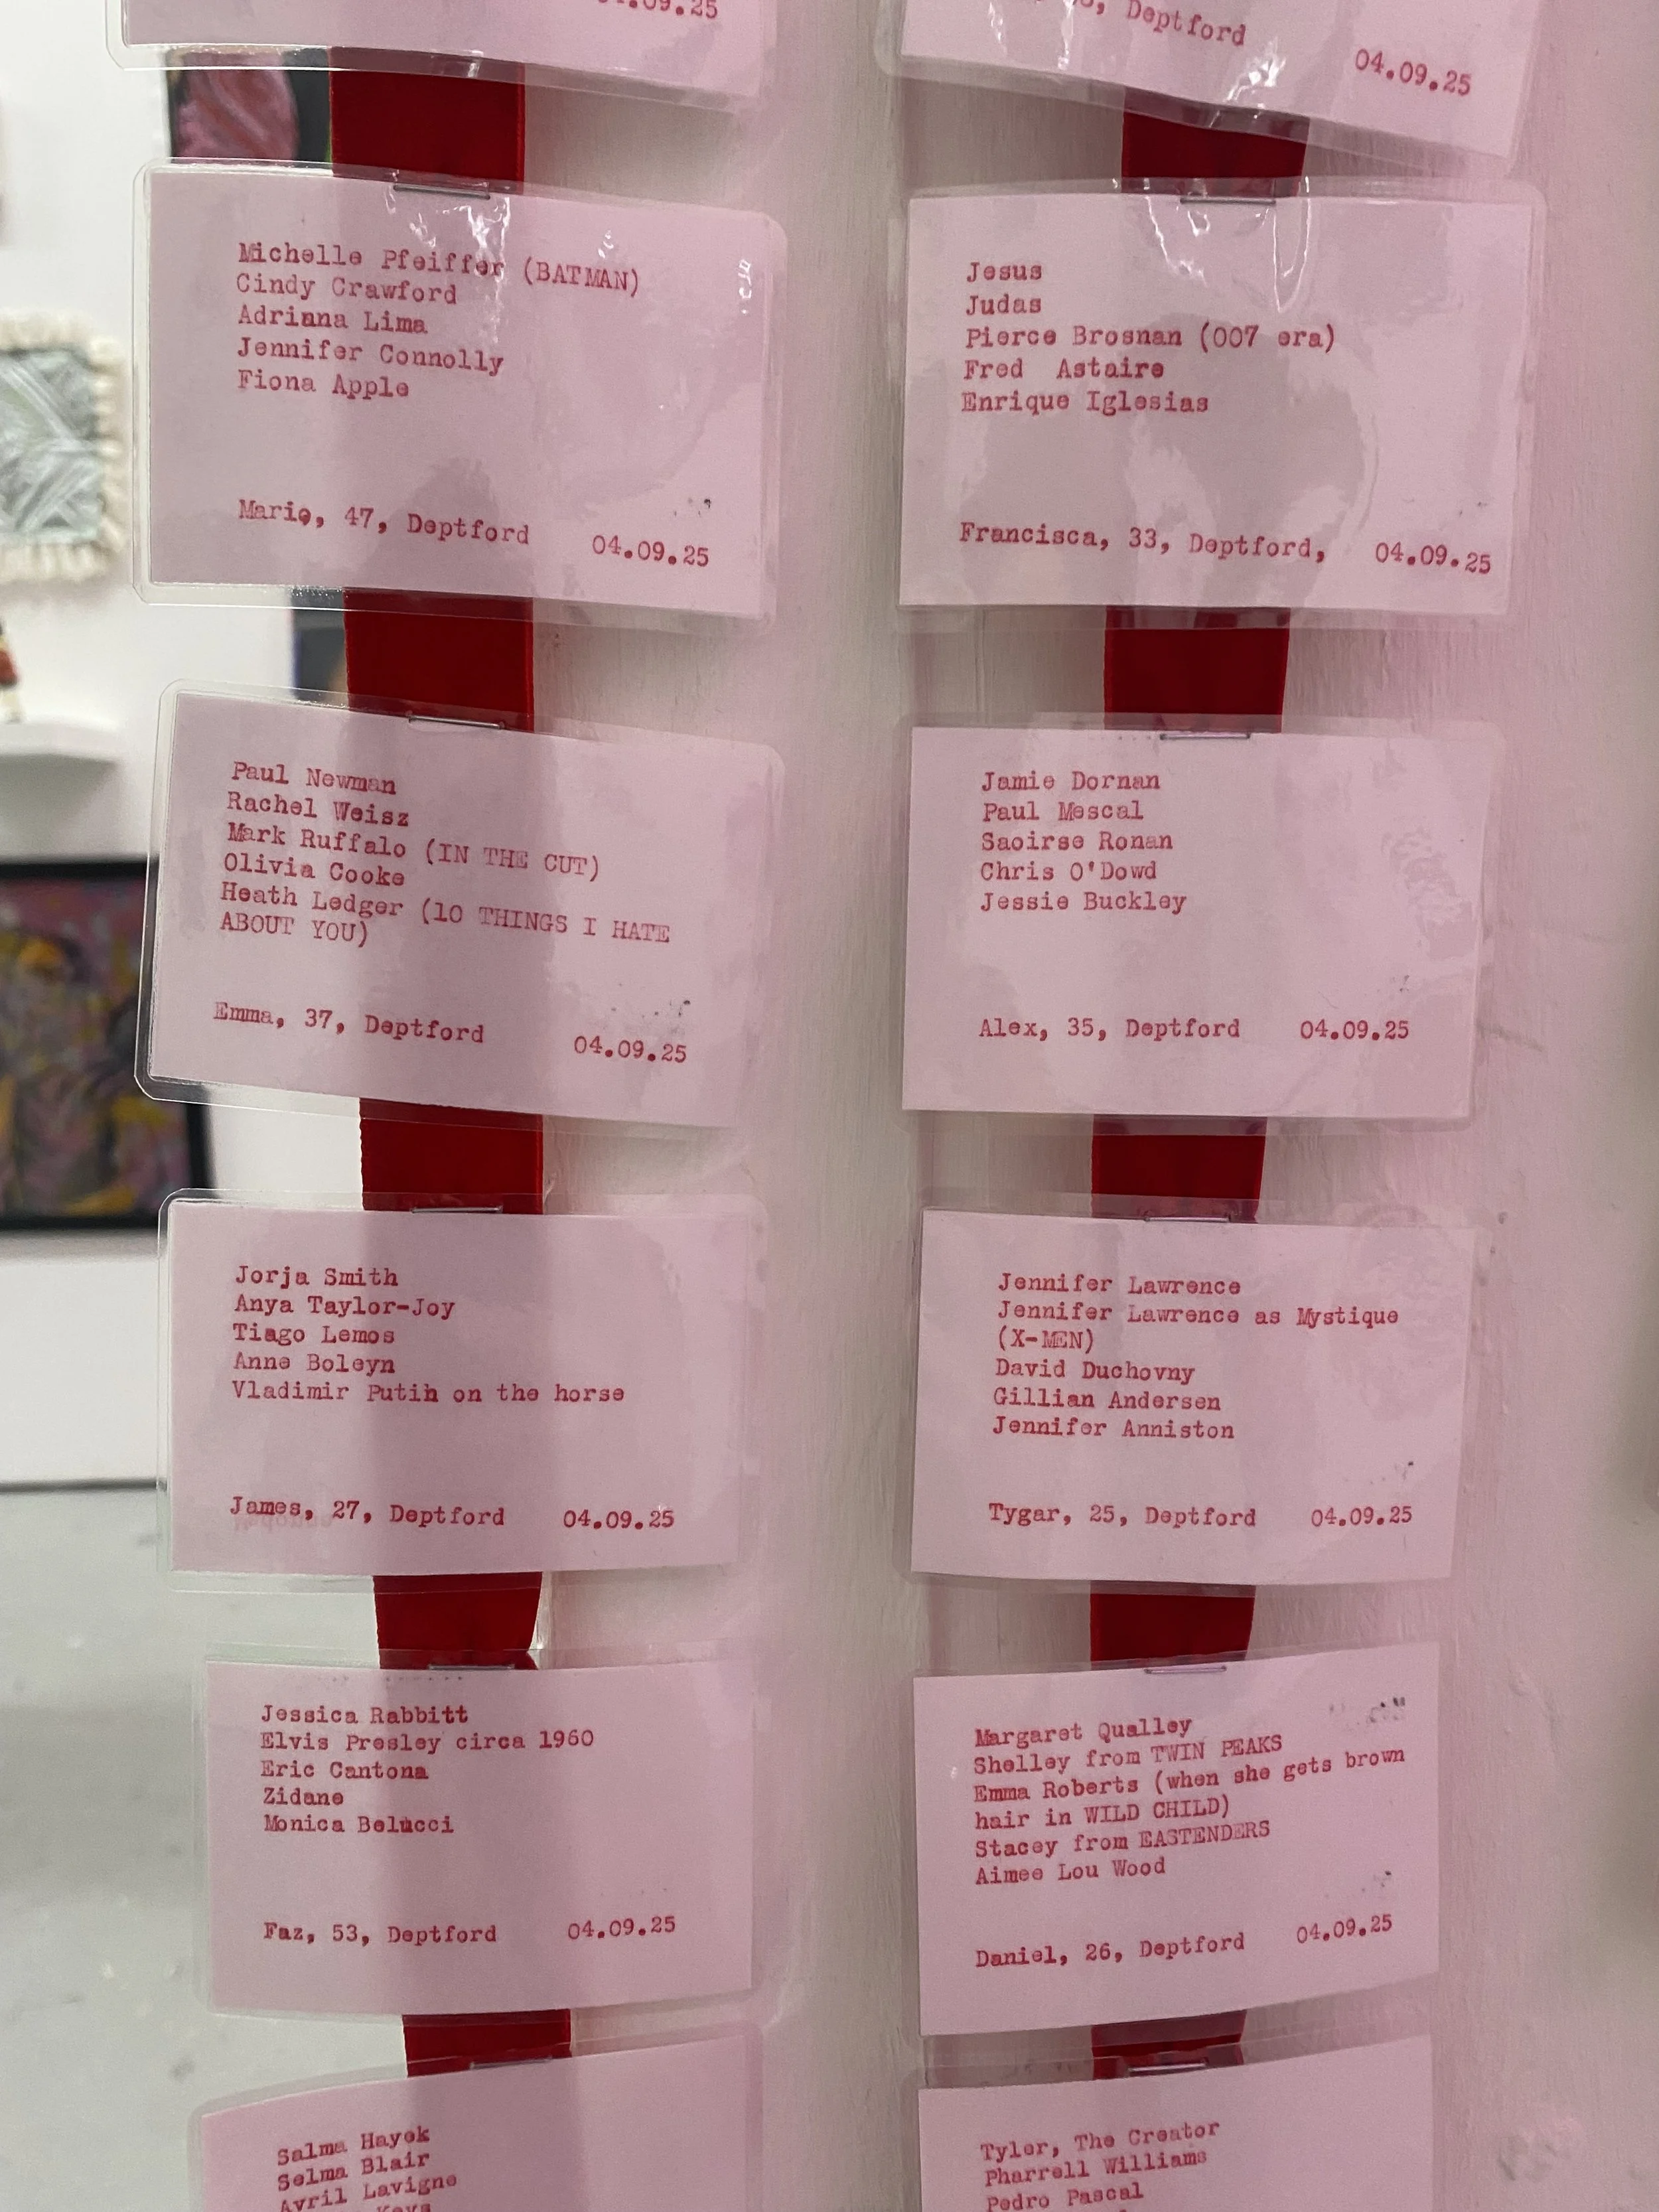 04.09.25
Deptford
04.09.25
Michelle Pfeiffer (BATMAN)
Cindy Crawford
Adriana Lima
Jennifer Connolly
Fiona Apple
Mario, 47, Deptford 04.09.25
Jesus
Judas
Pierce Brosnan (007 era)
Fred Astaire
Enrique Iglesias
Francisca, 33, Deptford, 04.09.25
Paul Newman
Rachel Weisz
Mark Ruffalo (IN THE CUT)
Olivia Cooke
Heath Ledger (10 THINGS I HATE
ABOUT YOU)
Emma, 37, Deptford 04.09.25
Jamie Dornan
Paul Mescal
Saoirse Ronan
Chris O'Dowd
Jessie Buckley
Alex, 35, Deptford 04.09.25
Jorja Smith
Anya Taylor-Joy
Tiago Lemos
Anne Boleyn
Vladimir Putin on the horse
James, 27, Deptford 04.09.25
Jennifer Lawrence
Jennifer Lawrence as Mystique
(X-MEN)
David Duchovny
Gillian Andersen
Jennifer Anniston
Tygar, 25, Deptford 04.09.25
Jessica Rabbitt
Elvis Presley circa 1960
Eric Cantona
Zidane
Monica Belucci
Faz, 53, Deptford 04.09.25
Margaret Qualley
Shelley from TWIN PEAKS
Emma Roberts (when she gets brown
hair in WILD CHILD)
Stacey from EASTENDERS
Aimee Lou Wood
Daniel, 26, Deptford 04.09.25
Salma Hayek
Selma Blair
Avril Lavigne
Tyler, The Creator
Pharrell Williams
Pedro Pascal